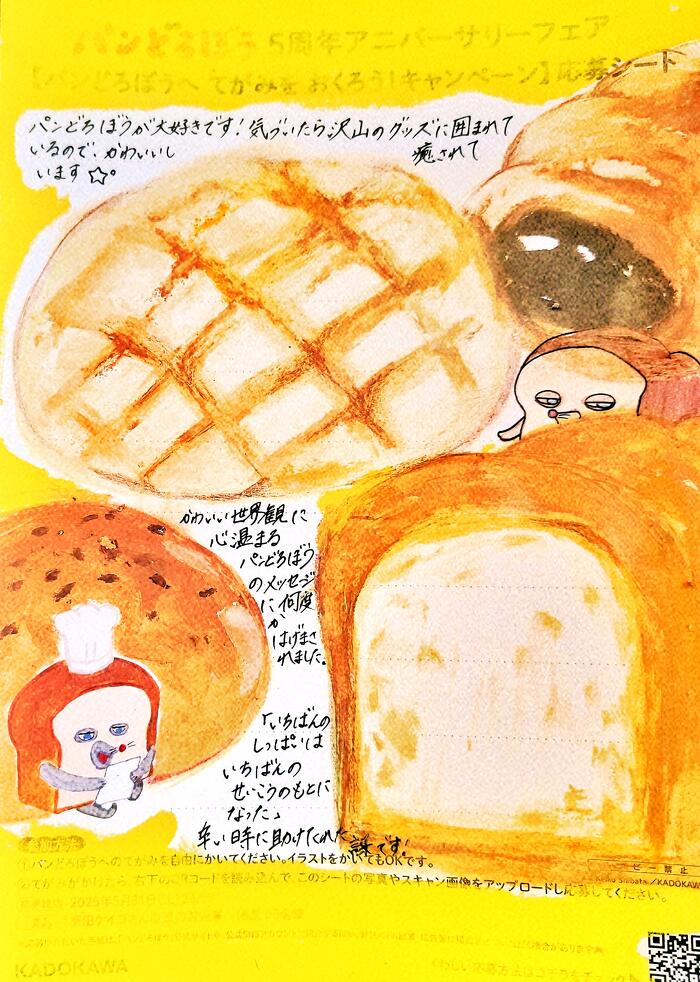 パンどろぼう 5周年アニバーサリーフェア
【パンどろぼうへ てがみを おくろう!キャンペーン】応募シート
パンどろぼうが大好きです!気づいたら沢山のグッズに囲まれて
いるので、かわいいし 癒されて
います☆。
かわいい世界観に
心温まる
パンどろぼう
のメッセージ
に何度
か
はげまさ
れました。
「いちばんの
しっぱいは
いちばんの
せいこうのもとに
なった」
辛い時に助けてくれた言葉です!
参加方法
①パンどろぼうへのてがみを自由にかいてください。イラストをかいてもOKです。
②てがみがかけたら、右下のQRコードを読み込んで、このシートの写真やスキャン画像をアップロードし応募してください。
コピー禁止
©Keiko Shibata/KADOKAWA
2025年5月31日
KADOKAWA
くわしい応募方法はコチラをチェック